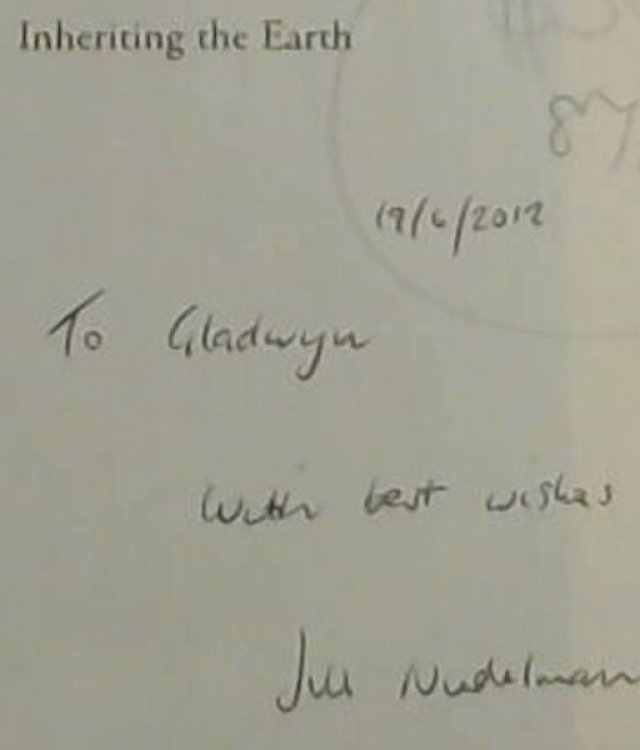 Inheriting the Earth
19/6/2012
To Gladwyn
With best wishes
Jill Nudelman